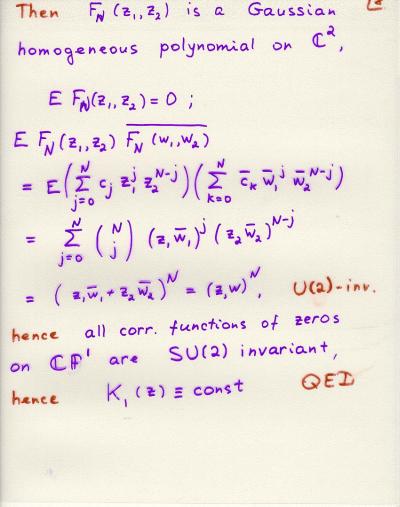 Then F_N (z₁, z₂) is a Gaussian
homogeneous polynomial on ℂ²,
E F_N(z₁, z₂) = 0 ;
E F_N(z₁, z₂) \overline{F_N (w₁, w₂)}
= E( \sum_{j=0}^{N} c_j z₁^j z₂^{N-j} )( \sum_{k=0}^{N} \bar{c}_k \bar{w}₁^j \bar{w}₂^{N-j} )
= \sum_{j=0}^{N} \binom{N}{j} (z₁ \bar{w}₁)^j (z₂ \bar{w}₂)^{N-j}
= ( z₁ \bar{w}₁ + z₂ \bar{w}₂ )^N = (z, w)^N, U(2)-inv.
hence all corr. functions of zeros
on ℂP¹ are SU(2) invariant,
hence K₁ (z) ≡ const QED